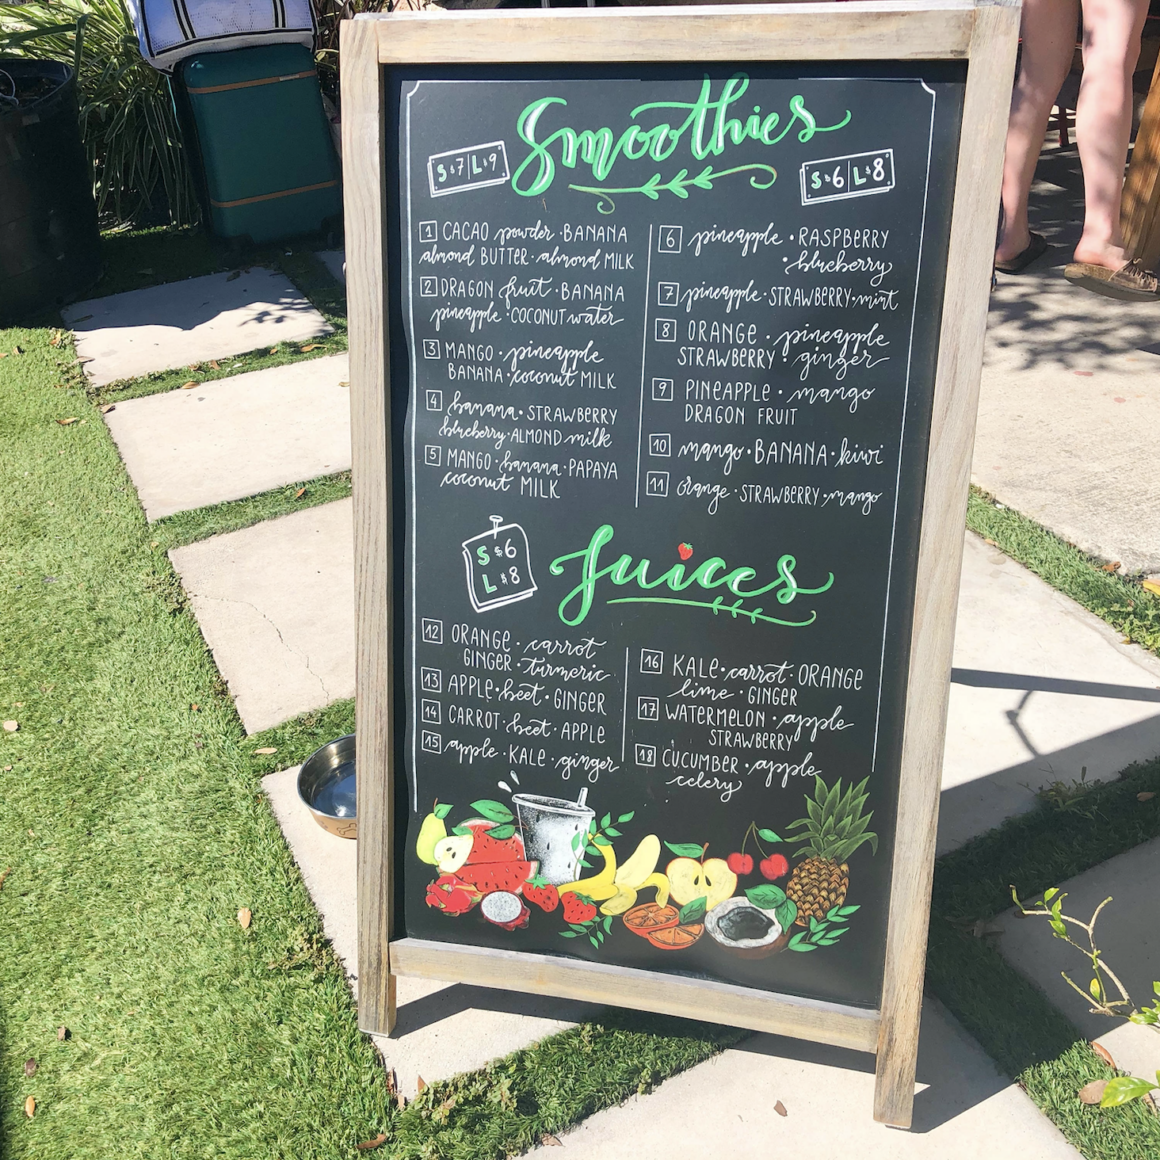 Smoothies
S $7 | L $9
1 CACAO powder · BANANA
almond BUTTER · almond MILK
2 DRAGON fruit · BANANA
pineapple · COCONUT water
3 MANGO · pineapple
BANANA · coconut MILK
4 banana · STRAWBERRY
blueberry · ALMOND milk
5 MANGO · banana · PAPAYA
coconut MILK
S $6 | L $8
6 pineapple · RASPBERRY
· blueberry
7 pineapple · STRAWBERRY · mint
8 ORANGE · pineapple
STRAWBERRY · ginger
9 PINEAPPLE · mango
DRAGON FRUIT
10 mango · BANANA · kiwi
11 orange · STRAWBERRY · mango
Juices
S $6
L $8
12 ORANGE · carrot
GINGER · turmeric
13 APPLE · beet · GINGER
14 CARROT · beet · APPLE
15 apple · KALE · ginger
16 KALE · carrot · ORANGE
lime · GINGER
17 WATERMELON · apple
STRAWBERRY
18 CUCUMBER · apple
celery